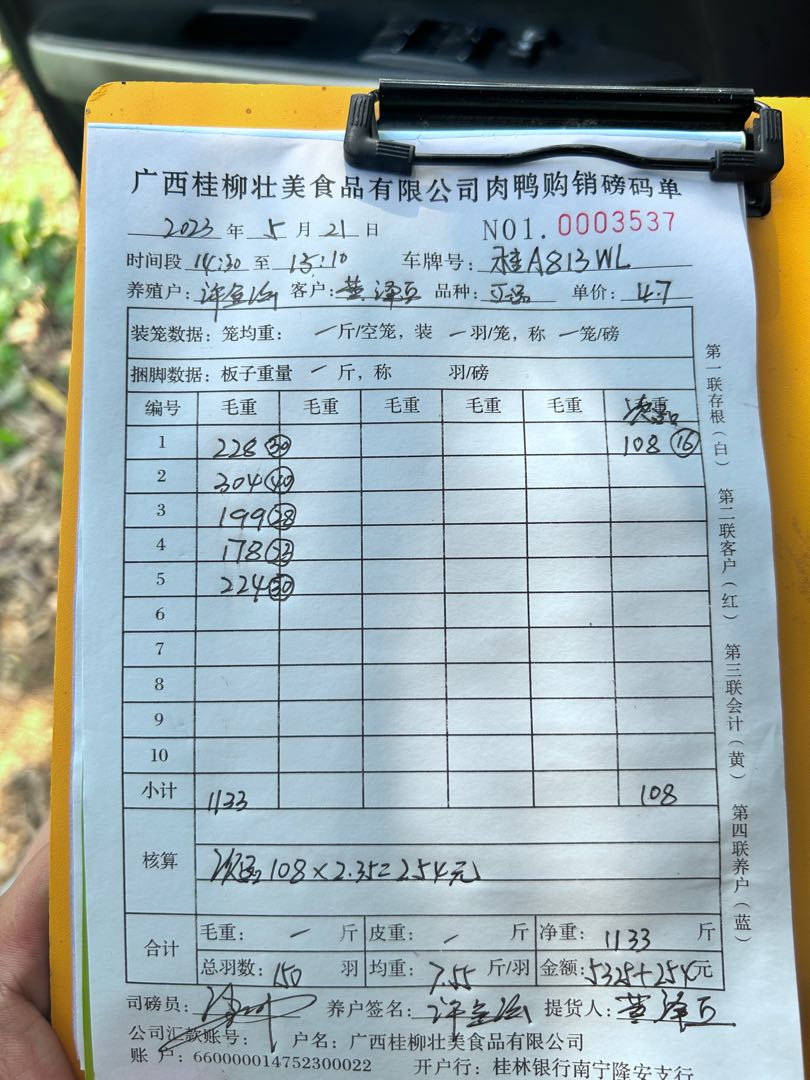 广西桂柳壮美食品有限公司肉鸭购销磅码单
2023 年 5 月 21 日 NO1. 0003537
时间段 14:30 至 15:10 车牌号: 桂A813WL
养殖户: 客户: 黄泽 品种: 正品 单价: 4.7
装笼数据: 笼均重: 一 斤/空笼, 装 一 羽/笼, 称 一 笼/磅
捆脚数据: 板子重量 一 斤, 称 羽/磅
编号 毛重 毛重 毛重 毛重 毛重 重
1 228 30 108 16
2 304 40
3 199
4 178
5 224 30
6
7
8
9
10
小计 1133 108
核算 108×2.35=254元
合计 毛重: 一 斤 皮重: 一 斤 净重: 1133 斤
总羽数: 150 羽 均重: 7.55 斤/羽 金额: 5325+254 元
司磅员: 养户签名: 提货人: 黄泽
公司汇款账号: 户名: 广西桂柳壮美食品有限公司
账 户: 660000014752300022 开户行: 桂林银行南宁隆安支行
第一联存根(白) 第二联客户(红) 第三联会计(黄) 第四联养户(蓝)